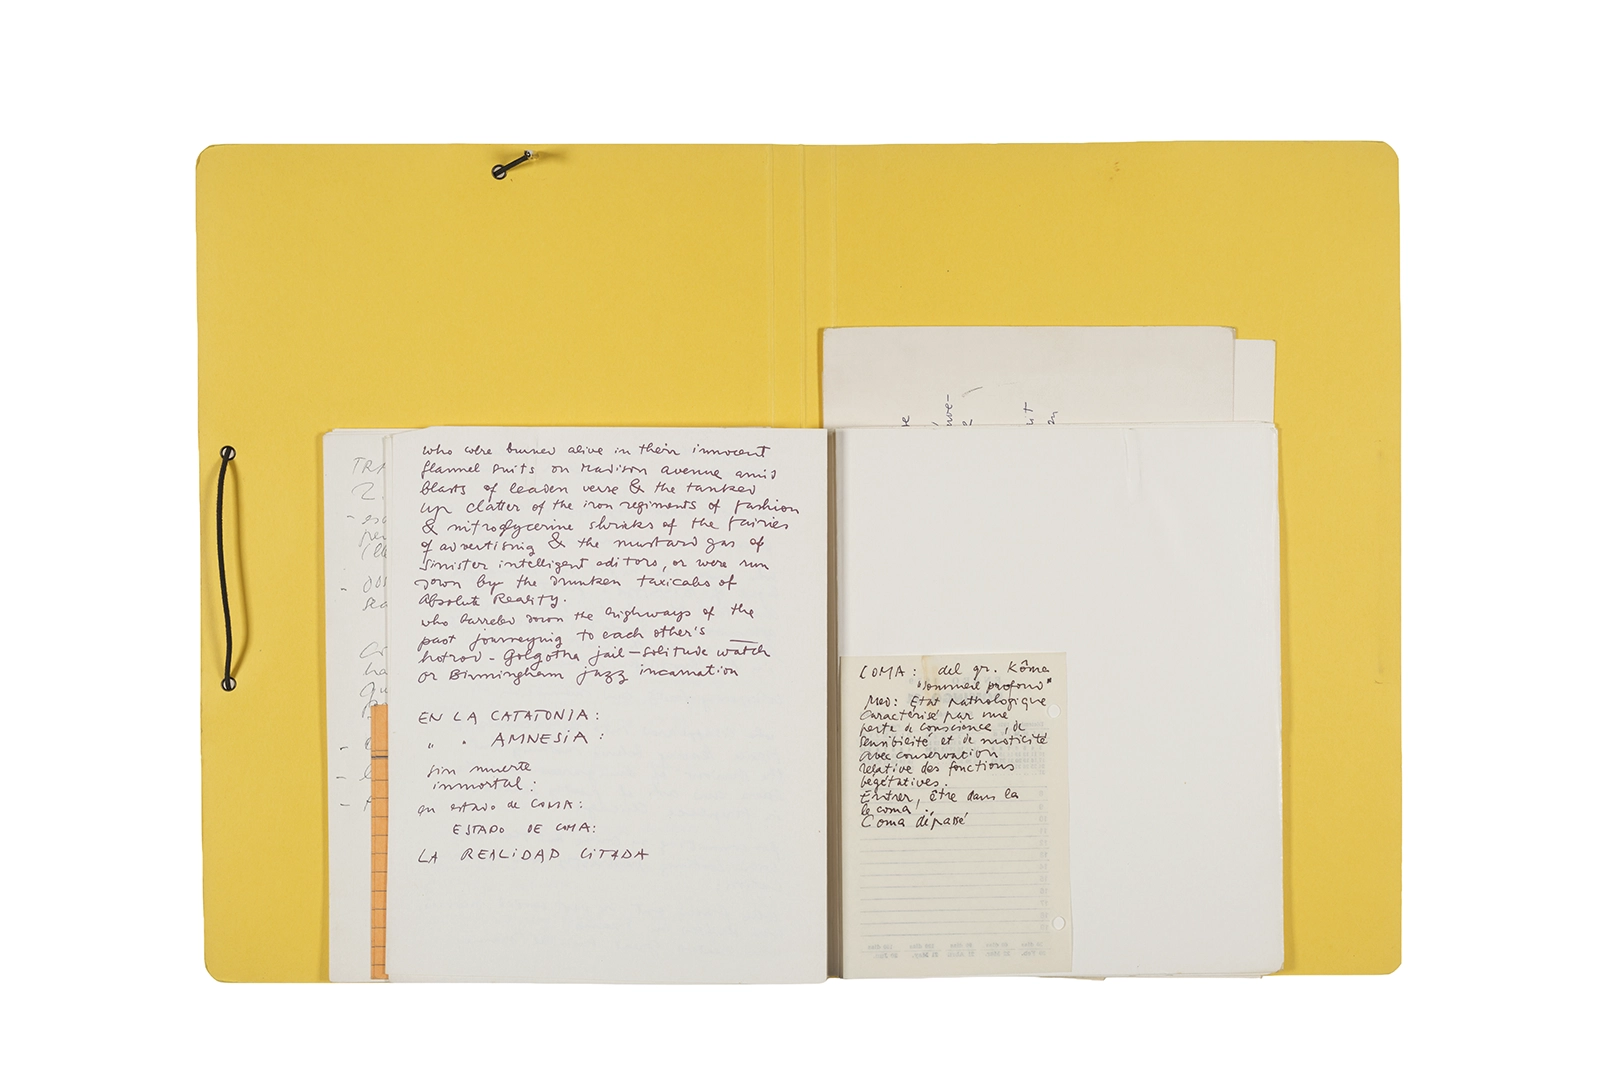 who were burned alive in their innocent
flannel suits on Madison avenue amid
blasts of leaden verse & the tanked
up clatter of the iron regiments of fashion
& nitroglycerine shrieks of the fairies
of advertising & the mustard gas of
sinister intelligent editors, or were run
down by the drunken taxicabs of
Absolute Reality.
who barreled down the highways of the
past journeying to each other's
hotrod - Golgotha jail - solitude watch
or Birmingham jazz incarnation
EN LA CATATONIA:
" " AMNESIA:
sin muerte
inmortal:
en estado de COMA:
ESTADO DE COMA:
LA REALIDAD CITADA
COMA: del gr. Kôma
"sommeil profond"
Med: État pathologique
caractérisé par une
perte de conscience, de
sensibilité et de moticité
avec conservation
relative des fonctions
végétatives.
Entrer, être dans la
le coma.
Coma dépassé